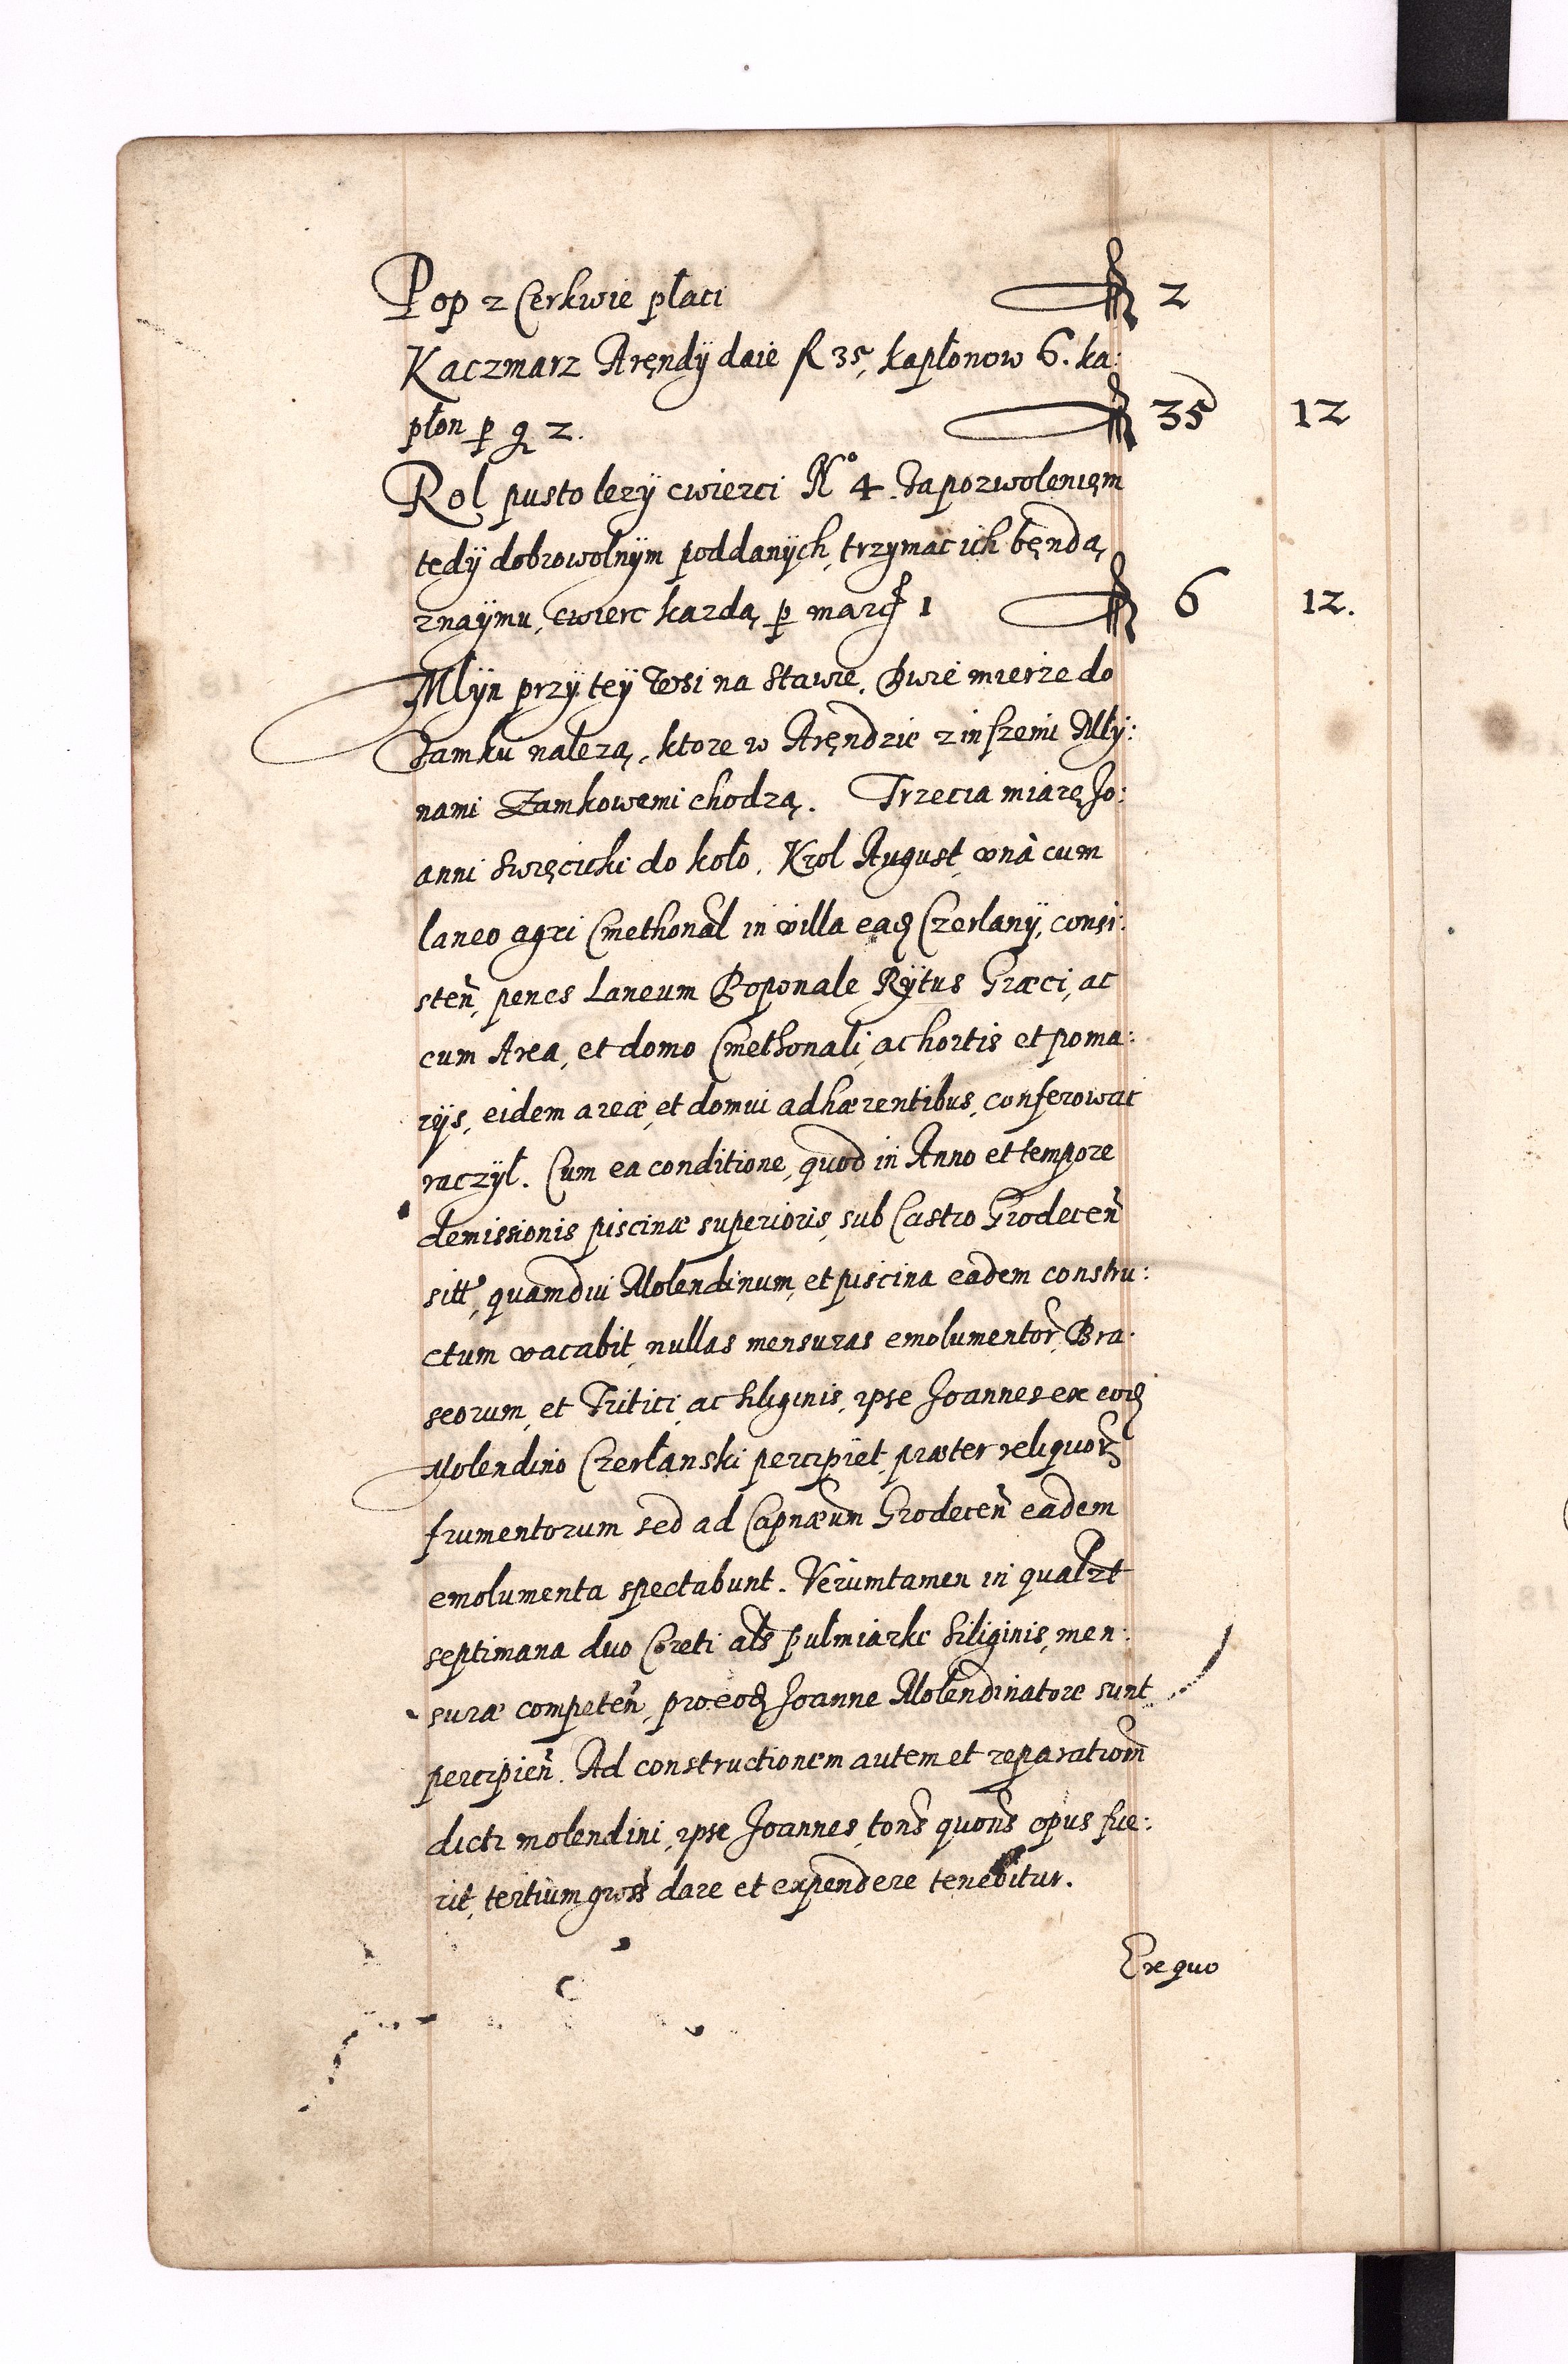 Pop z Cerkwie płaci fl 2
Kaczmarz Aręndÿ daie fl 35, kapłonow 6. ka:
płon p g 2. fl 35 12
Rol pusto lezÿ cwierci No 4. Za pozwolenięm
tedÿ dobrowolnÿm poddanÿch, trzymac ich bęndą,
znaÿmu, cwierc kazdą, p marc 1 fl 6 12.
Mlÿn przÿ teÿ Wsi na Stawie, Dwie mierze do
Zamku nalezą, ktore w Aręndzie z inszemi Młÿ:
nami Zamkowemi chodzą. Trzecia miarę Jo:
anni Swięcicki do koło, Krol August, vnà cum
laneo agri Cmethonal in villa eadꝫ Czerlanÿ, consi:
sten, penes Laneum Poponale Rÿtus Græci, ac
cum Area, et domo Cmethonali, ac hortis et poma:
rÿs, eidem areæ, et domui adhærentibus, conferowac
raczÿł. Cum ea conditione, quod in Anno et tempore
demissionis piscinæ superioris, sub Castro Grodecen
sitt, quamdiu Molendinum, et piscina eadem constru:
ctum vacabit, nullas mensuras emolumentor, Bra:
seorum, et Tritici, ac Siliginis, ipse Joannes ex eodꝫ
Molendino Czerłanski percipiet, præter reliquorꝫ
frumentorum sed ad Capnæum Grodecen eadem
emolumenta spectabunt. Verùmtamen in qualzt
septimana duo Coreti als pułmiarke Siliginis, men:
suræ competen, pro eodꝫ Joanne Molendinatore sunt
percipien. Ad constructionem autem et reparatiom
dicti molendini, ipse Joannes, tons quons opus fue:
rit, tertium gross dare et expendere tenebitur.
Ex quo